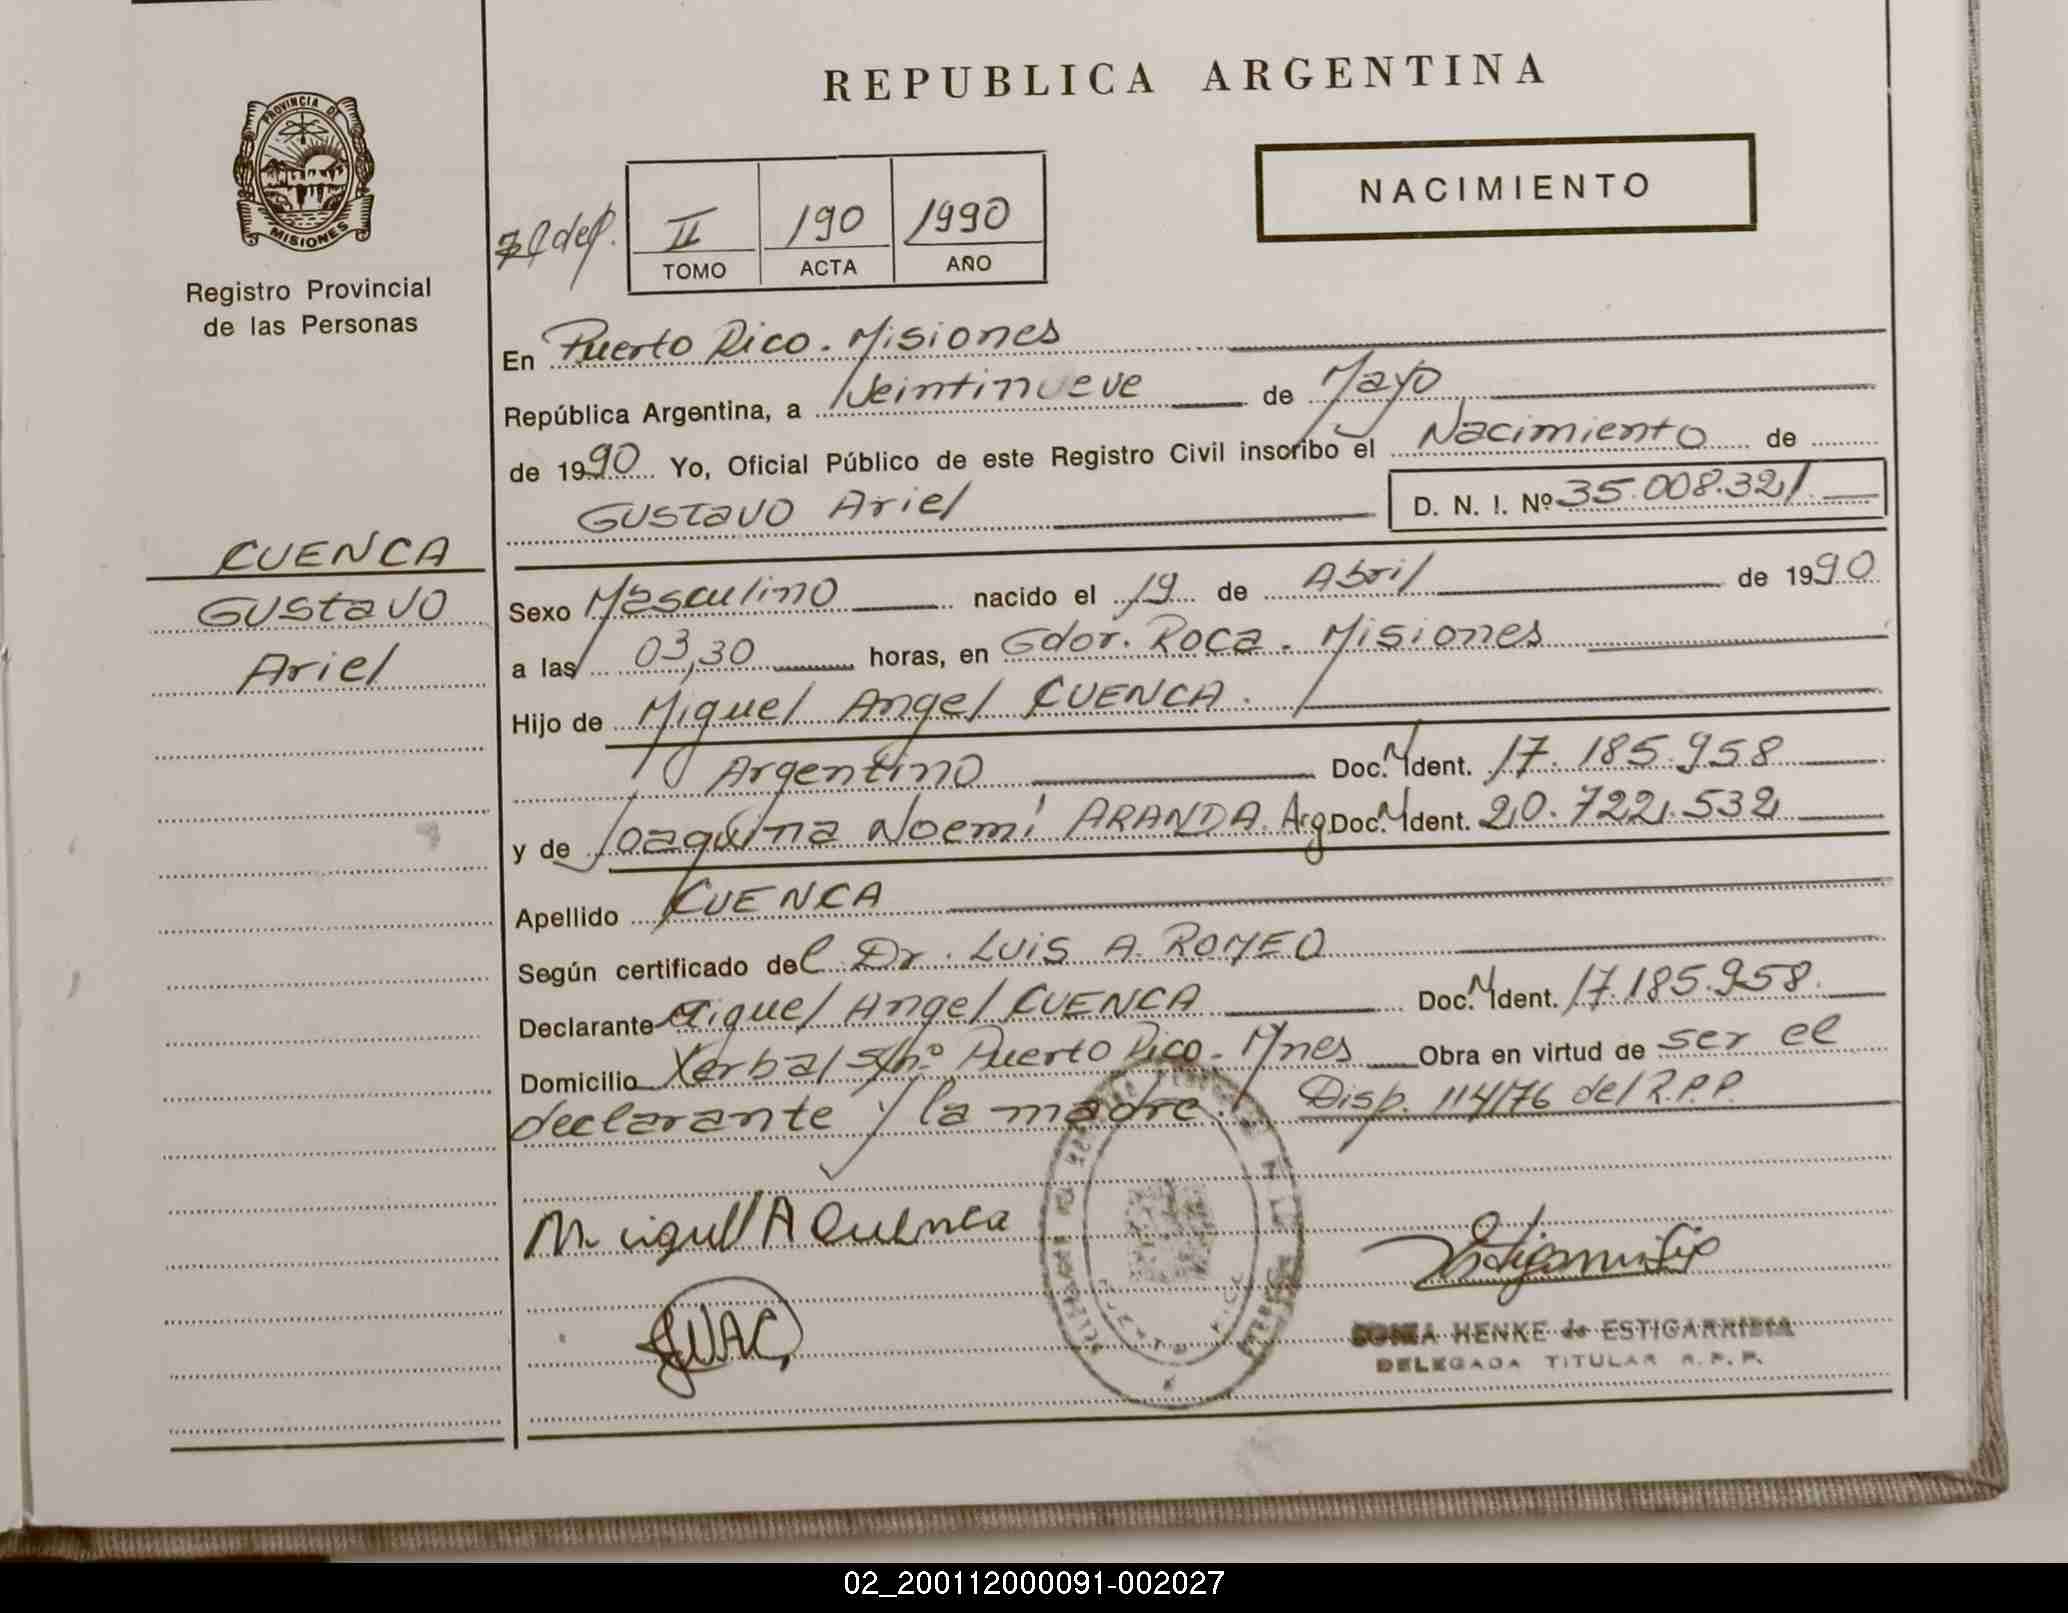 REPUBLICA ARGENTINA
PROVINCIA DE
MISIONES
Registro Provincial
de las Personas
NACIMIENTO
II 190 1990
TOMO ACTA AÑO
En Puerto Rico. Misiones
República Argentina, a Veintinueve de Mayo
de 1990 Yo, Oficial Público de este Registro Civil inscribo el Nacimiento de
Gustavo Ariel D. N. I. Nº 35.008.321
CUENCA
Gustavo
Ariel
Sexo Masculino nacido el 19 de Abril de 1990
a las 03,30 horas, en Gdor. Roca. Misiones
Hijo de Miguel Angel CUENCA.
Argentino Doc. N Ident. 17.185.958
y de Joaquina Noemí ARANDA. Arg Doc. N Ident. 20.722.532
Apellido CUENCA
Según certificado del Dr. LUIS A. ROMEO
Declarante Miguel Angel CUENCA Doc. N Ident. 17.185.958.
Domicilio Yerbal s/nº Puerto Rico. Mnes Obra en virtud de ser el
declarante y la madre. Disp. 114/76 del R.P.P.
Miguel A Cuenca
SONIA HENKE de ESTIGARRIBIA
DELEGADA TITULAR R. P. P.
02_200112000091-002027